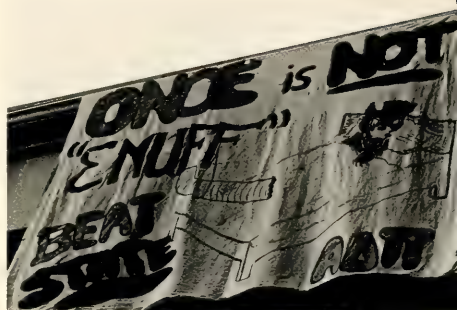 ONCE is NOT
"ENUFF"
BEAT
STATE
ΑΔΠ